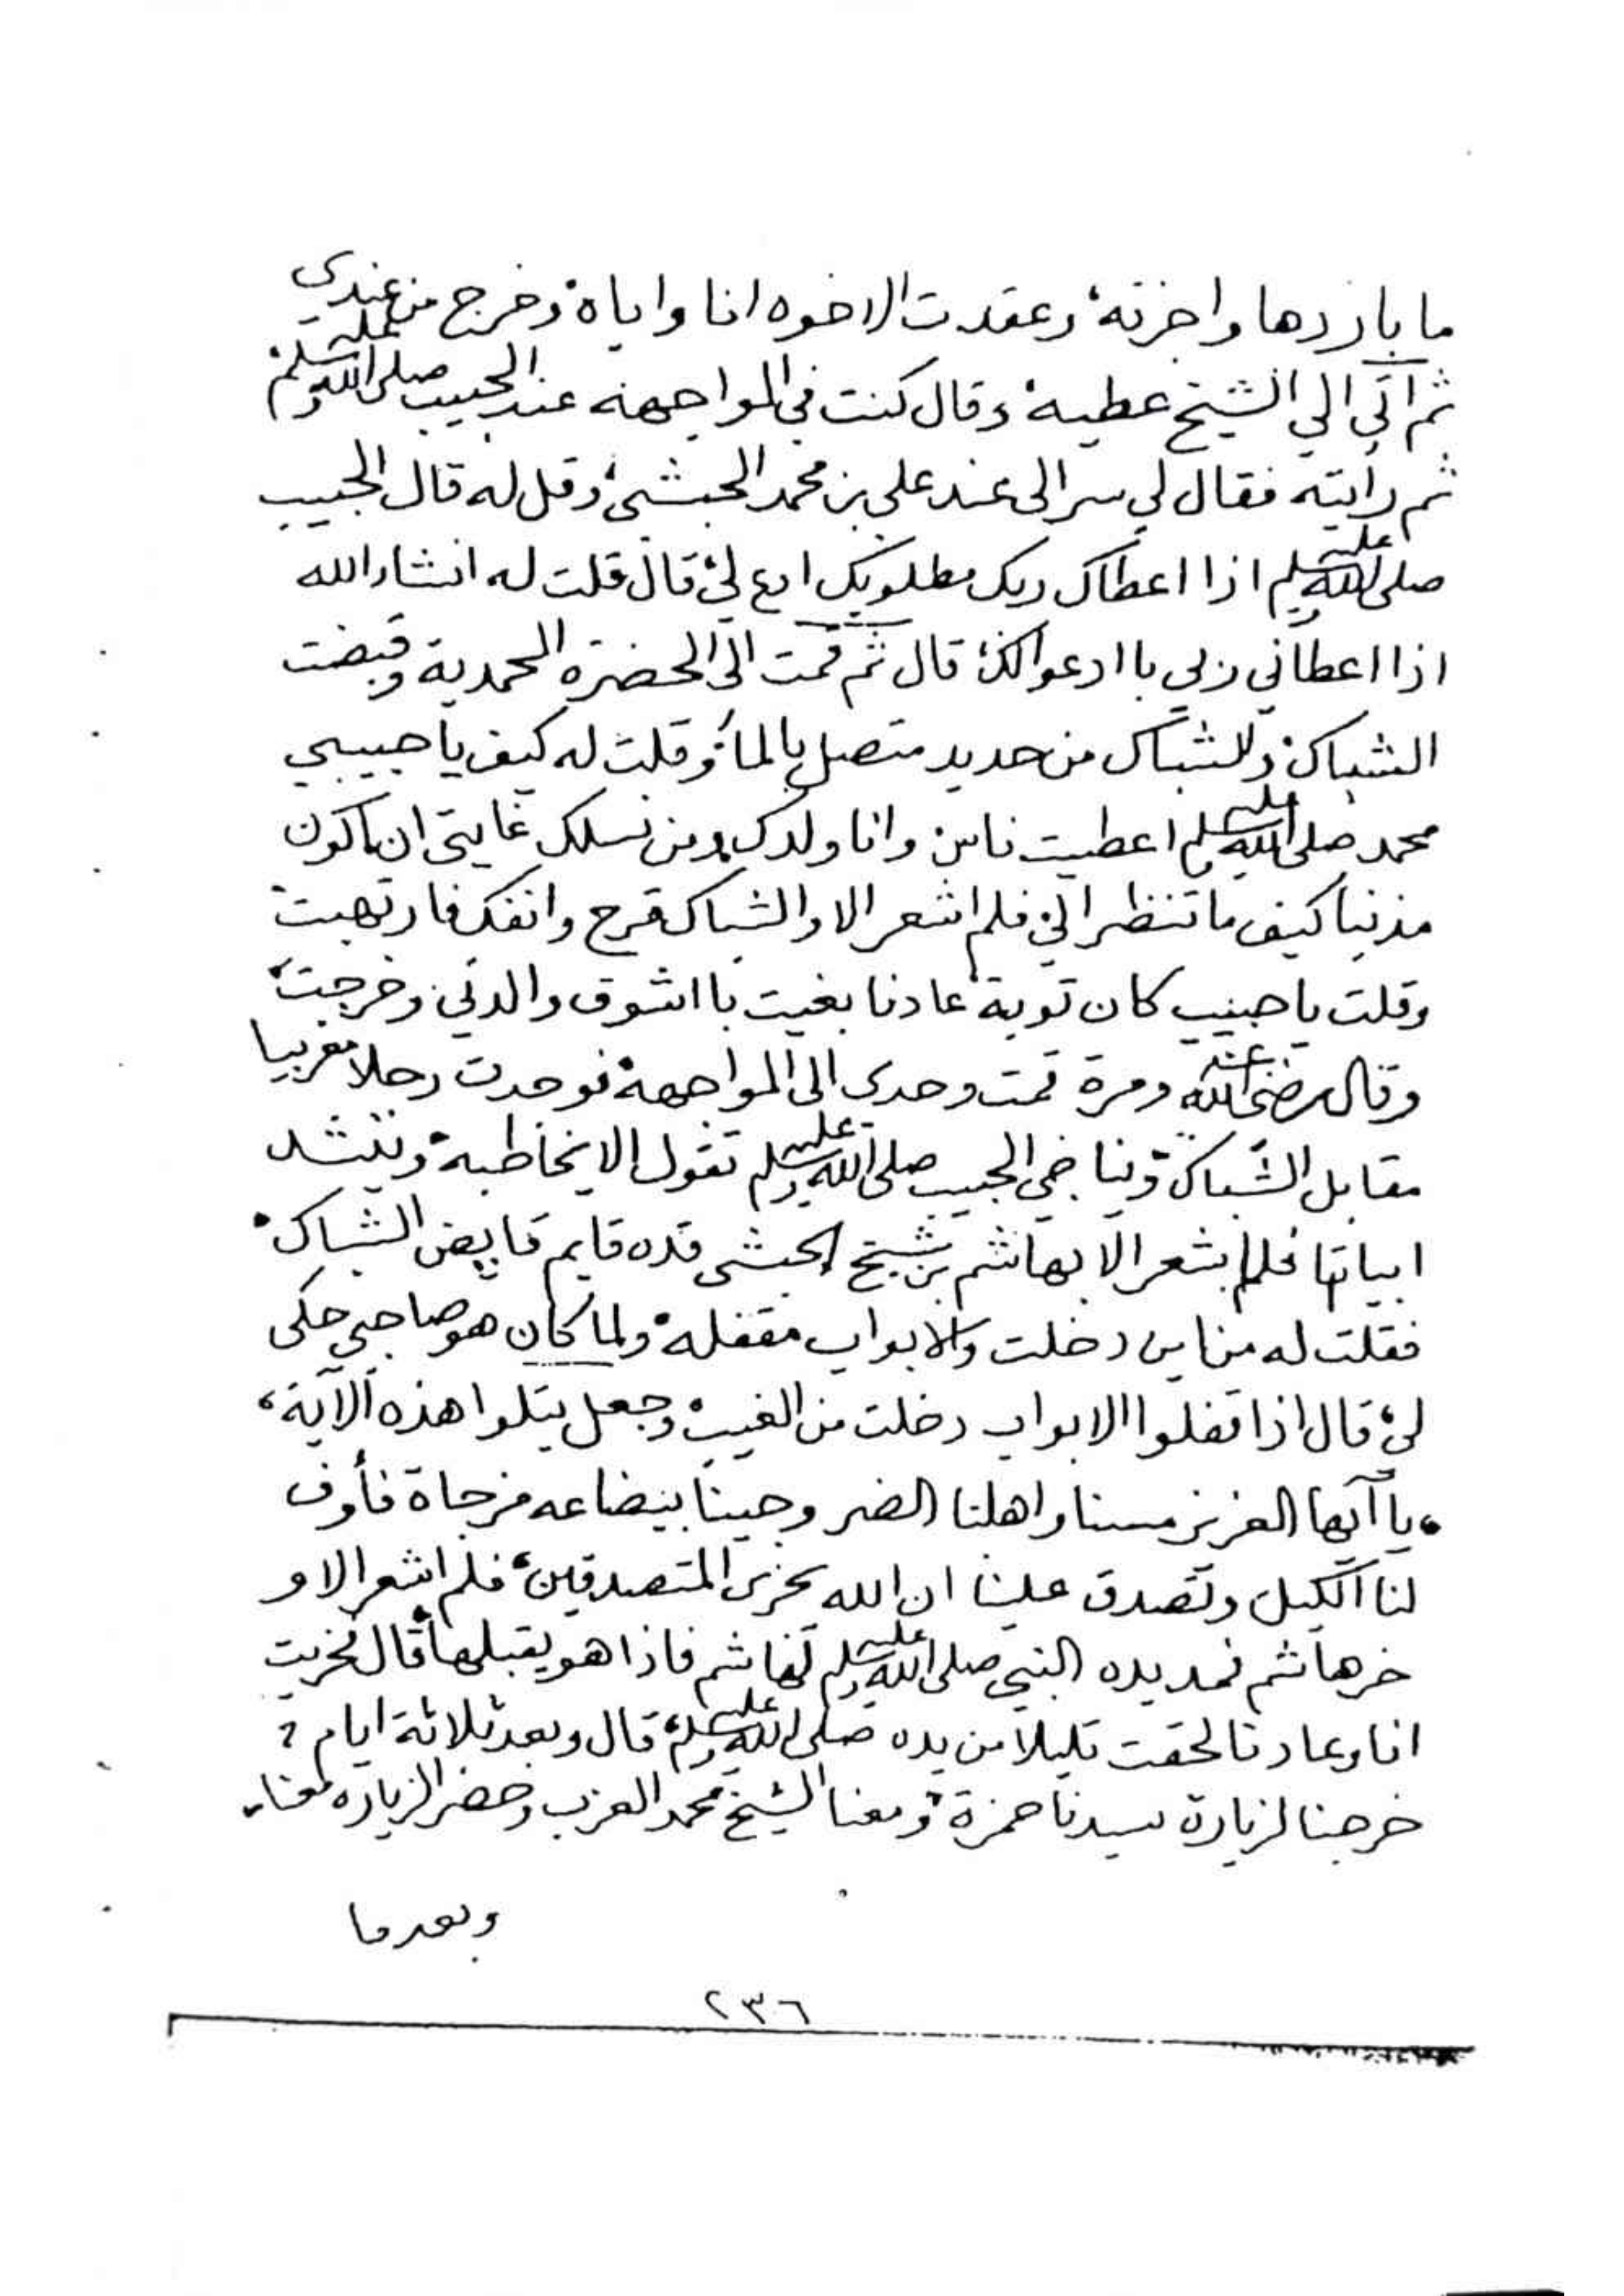 ما باازدها واجزته، وعقدت الاخوه انا واياه، وخرج من عندي
ثم اتى الي الشيخ عطيه، وقال كنت في المواجهه عند الحبيب صلى الله عليه وسلم
ثم رايته فقال لي سر الى عند علي بن محمد الحبشي، وقل له قال الحبيب
صلى الله عليه وسلم اذا اعطاك ربك مطلوبك ادع لي، قال قلت له انشاء الله
اذا اعطاني ربي با ادعوا لك، قال ثم قمت الى الحضرة المحمدية وقبضت
الشباك، والشباك من حديد متصل بالماء، وقلت له كيف يا حبيبي
محمد صلى الله عليه وسلم اعطيت ناس وانا ولدك ومن نسلك غايتي ان اكون
مذنبا كيف ما تنظر الي، فلم اشعر الا والشباك قرح وانفك فارتهبت
وقلت يا حبيب كان توبة، عادنا بغيت با اشوف والدتي، وخرجت،
وقال رضي الله عنه ومرة قمت وحدي الى المواجهه، فوجدت رجلا مغربيا
مقابل الشباك، ويناجي الحبيب صلى الله عليه وسلم تقول الا يخاطبه، وينشد
ابياتا فلم اشعر الا بهاشم بن شيخ الحبشي قده قايم قابض الشباك،
فقلت له من اين دخلت والابواب مقفله، ولما كان هو صاحبي حكى
لي، قال اذا قفلوا الابواب دخلت من الغيب، وجعل يتلوا هذه الآية،
، يا أيها العزيز مسنا واهلنا الضر وجينا ببضاعه مزجاة فأوف
لنا الكيل وتصدق علينا ان الله يجزى المتصدقين، فلم اشعر الا و
خرهاشم فمد يده النبي صلى الله عليه وسلم لهاشم فاذا هو يقبلها، قال فخريت
انا وعادنا لحقت قليلا من يده صلى الله عليه وسلم، قال وبعد ثلاثة ايام
خرجنا لزيارة سيدنا حمزة، ومعنا الشيخ محمد العزب وحضر الزياره معنا،
وبعد ما
٢٣٦